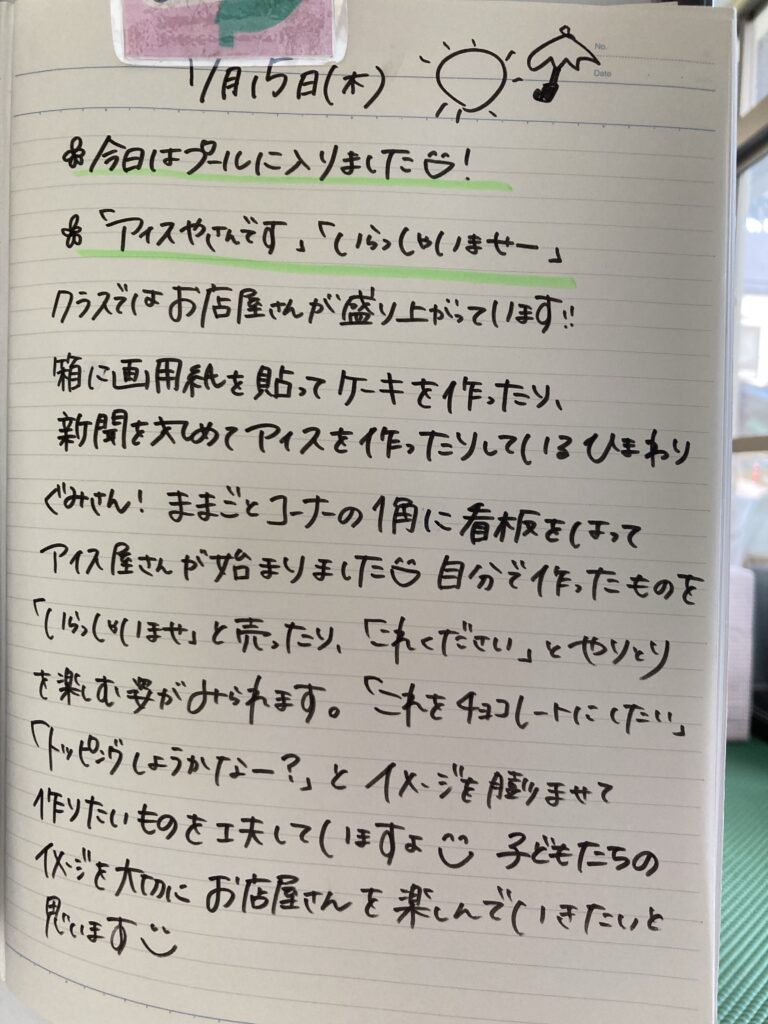 月15日(木)
No.
Date
今日はプールに入りました!
「アイスやさんです」「いらっしゃいませー」
クラスではお店屋さんが盛り上がっています!!
箱に画用紙を貼ってケーキを作ったり、
新聞を丸めてアイスを作ったりしているひまわり
ぐみさん! ままごとコーナーの1角に看板をはって
アイス屋さんが始まりました 自分で作ったものを
「いらっしゃいませ」と売ったり、「これください」とやりとり
を楽しむ姿がみられます。「これをチョコレートにしたい」
「トッピングしようかなー?」とイメージを膨ませて
作りたいものを工夫していますよ 子どもたちの
イメージを大切にお店屋さんを楽しんでいきたいと
思います